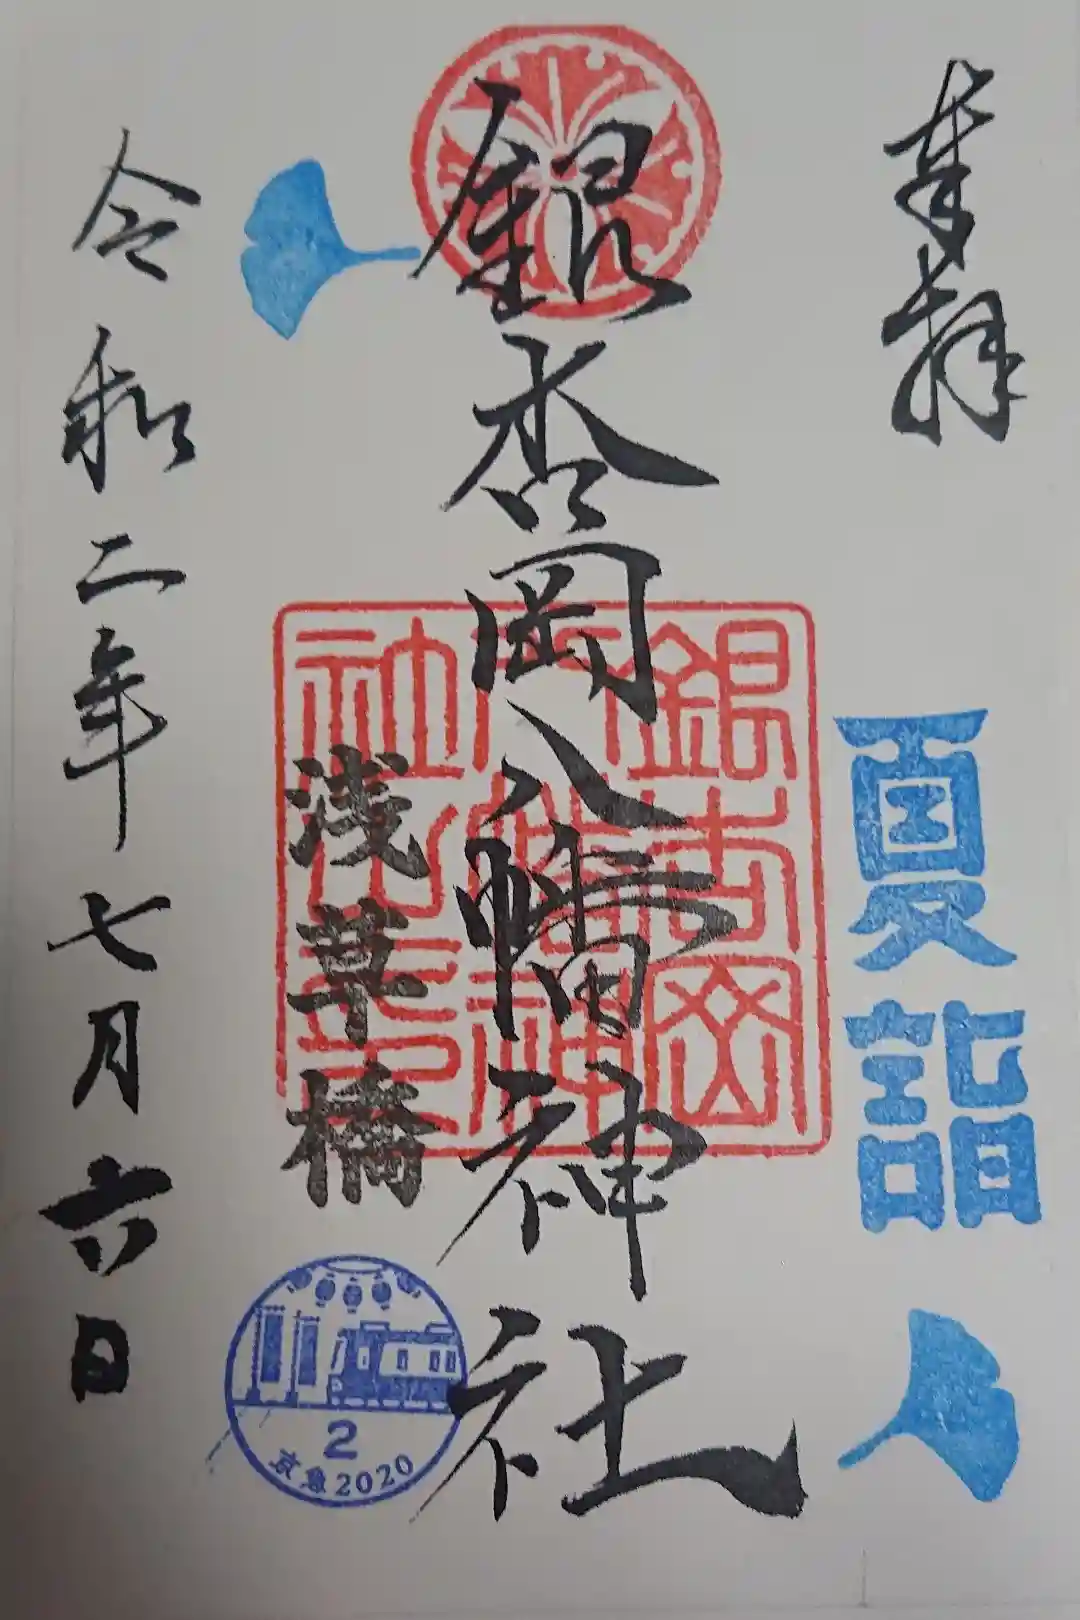 奉拝
夏詣
銀杏岡八幡神社
銀杏岡八幡神社
浅草橋
令和二年七月六日
2
京急2020